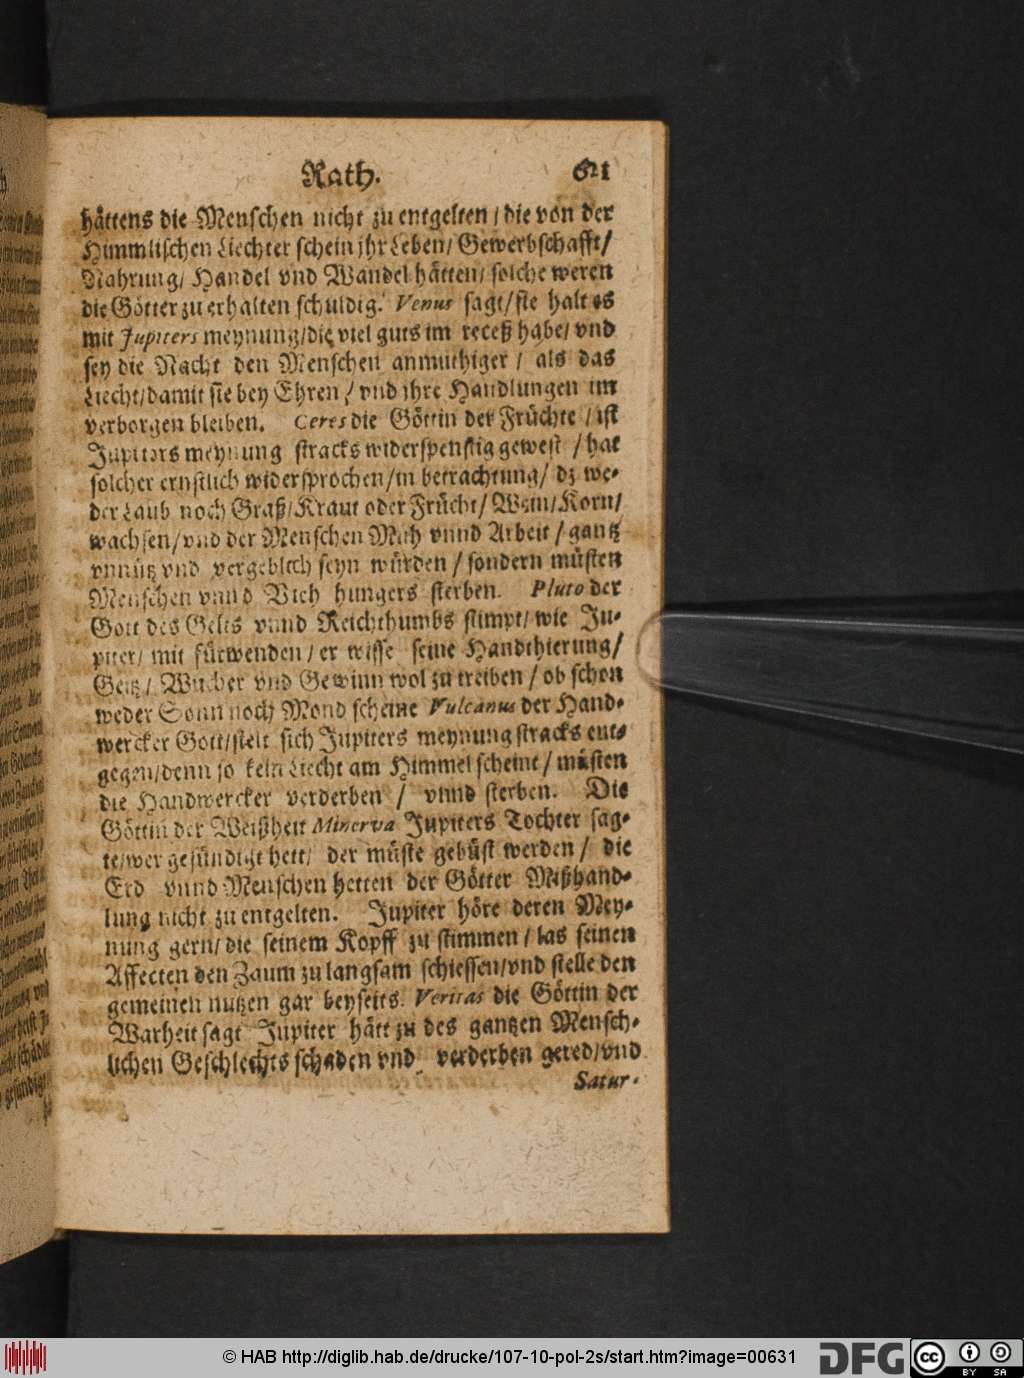 Rath. 621
hättens die Menschen nicht zu entgelten / die von der
Himmlischen Liechter schein jhr Leben / Gewerbschafft /
Nahrung / Handel vnd Wandel hätten / solche weren
die Götter zu erhalten schuldig. Venus sagt / sie halt es
mit Jupiters meynung / die viel guts im receß habe / vnd
sey die Nacht den Menschen anmuthiger / als das
Liecht / damit sie bey Ehren / vnd jhre Handlungen im
verborgen bleiben. Ceres die Göttin der Früchte / ist
Jupiters meynung stracks widerspenstig gewest / hat
solcher ernstlich widersprochen / in betrachtung / dz we-
der Laub noch Graß / Kraut oder Frücht / Wein / Korn /
wachsen / vnd der Menschen Müh vnnd Arbeit / gantz
vnnütz vnd vergeblich seyn würden / sondern müsten
Menschen vnnd Vieh hungers sterben. Pluto der
Gott des Gelts vnnd Reichthumbs stimpt / wie Ju-
piter / mit fürwenden / er wisse seine Handthierung /
Geitz / Wucher vnd Gewinn wol zu treiben / ob schon
weder Sonn noch Mond scheine Vulcanus der Hand-
wercker Gott / stelt sich Jupiters meynung stracks ent-
gegen / denn so kein Liecht am Himmel scheint / müsten
die Handwercker verderben / vnnd sterben. Die
Göttin der Weißheit Minerva Jupiters Tochter sag-
te / wer gesündigt hett / der müste gebüst werden / die
Erd vnnd Menschen hetten der Götter Mißhand-
lung nicht zu entgelten. Jupiter höre deren Mey-
nung gern / die seinem Kopff zu stimmen / las seinen
Affecten den Zaum zu langsam schiessen / vnd stelle den
gemeinen nutzen gar beyseits. Veritas die Göttin der
Warheit sagt Jupiter hätt zu des gantzen Mensch-
lichen Geschlechts schaden vnd verderben gered / vnd
Satur-
© HAB http://diglib.hab.de/drucke/107-10-pol-2s/start.htm?image=00631
DFG
cc BY SA